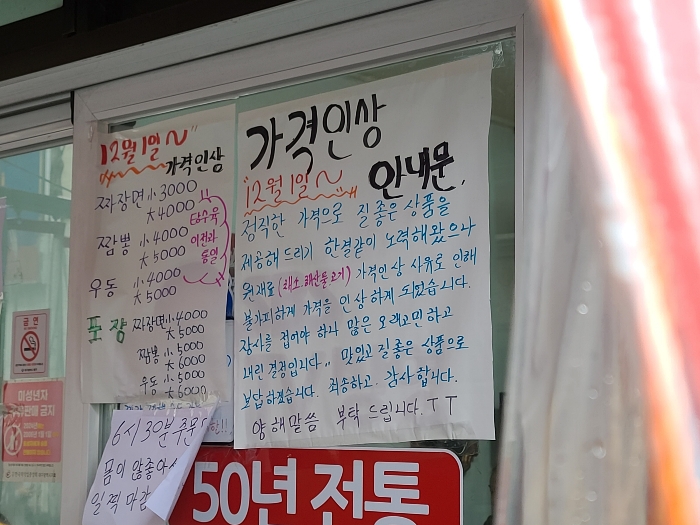 12월 1일~
가격인상
짜장면 小 3000
大 4000
짬뽕 小 4000
大 5000
우동 小 4000
大 5000
탕수육
이전과
동일
포장 짜장면 小 4000
大 5000
짬뽕 小 5000
大 6000
우동 小 5000
가격인상
12월 1일~
안내문.
정직한 가격으로 질좋은 상품을
제공해드리기 한결같이 노력해왔으나
원재료(채소.해산물.고기) 가격인상 사유로 인해
불가피하게 가격을 인상하게 되었습니다.
장사를 접어야 하나 많은 오랜고민하고
내린 결정입니다.. 맛있고 질좋은 상품으로
보답하겠습니다. 죄송하고. 감사합니다.
양해말씀 부탁드립니다.ㅜㅜ
6시 30분 주문
몸이 않좋아
일찍 마감
50년 전통
금연
미성년자
판매 금지